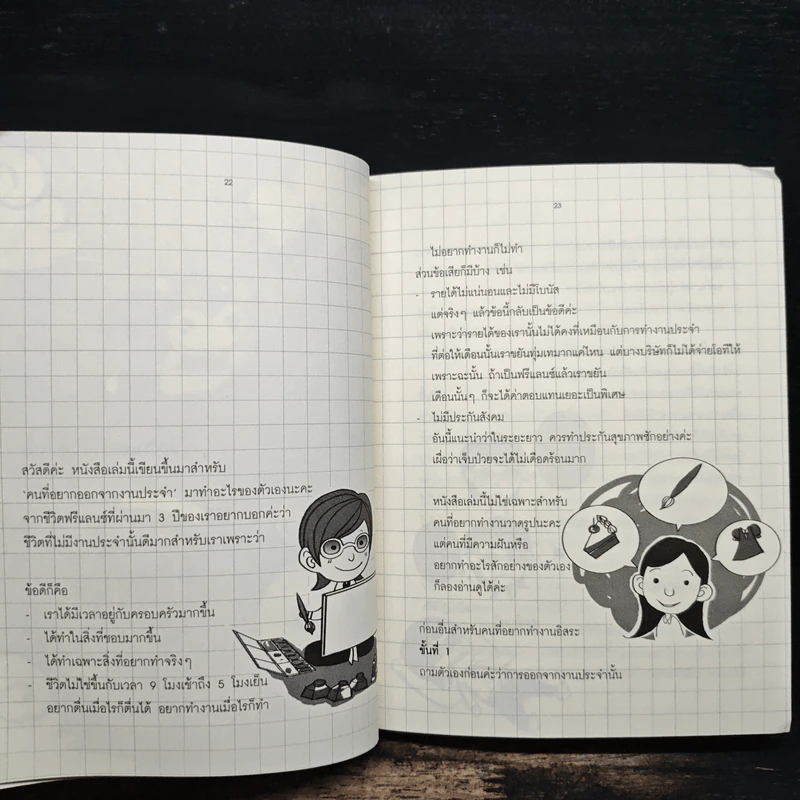 22
สวัสดีค่ะ หนังสือเล่มนี้เขียนขึ้นมาสำหรับ
'คนที่อยากออกจากงานประจำ' มาทำอะไรของตัวเองนะคะ
จากชีวิตฟรีแลนซ์ที่ผ่านมา 3 ปีของเราอยากบอกค่ะว่า
ชีวิตที่ไม่มีงานประจำนั้นดีมากสำหรับเราเพราะว่า
ข้อดีก็คือ
- เราได้มีเวลาอยู่กับครอบครัวมากขึ้น
- ได้ทำในสิ่งที่ชอบมากขึ้น
- ได้ทำเฉพาะสิ่งที่อยากทำจริงๆ
- ชีวิตไม่ใช่ขึ้นกับเวลา 9 โมงเช้าถึง 5 โมงเย็น
อยากตื่นเมื่อไรก็ตื่นได้ อยากทำงานเมื่อไรก็ทำ
23
ไม่อยากทำงานก็ไม่ทำ
ส่วนข้อเสียก็มีบ้าง เช่น
- รายได้ไม่แน่นอนและไม่มีโบนัส
แต่จริงๆ แล้วข้อนี้กลับเป็นข้อดีค่ะ
เพราะว่ารายได้ของเรานั้นไม่ได้คงที่เหมือนกับการทำงานประจำ
ที่ต่อให้เดือนนั้นเราขยันทุ่มเทมากแค่ไหน แต่บางบริษัทก็ไม่ได้จ่ายโอทีให้
เพราะฉะนั้น ถ้าเป็นฟรีแลนซ์แล้วเราขยัน
เดือนนั้นๆ ก็จะได้ค่าตอบแทนเยอะเป็นพิเศษ
- ไม่มีประกันสังคม
อันนี้แนะนำว่าในระยะยาว ควรทำประกันสุขภาพซักอย่างค่ะ
เผื่อว่าเจ็บป่วยจะได้ไม่เดือดร้อนมาก
หนังสือเล่มนี้ไม่ใช่เฉพาะสำหรับ
คนที่อยากทำงานวาดรูปนะคะ
แต่คนที่มีความฝันหรือ
อยากทำอะไรสักอย่างของตัวเอง
ก็ลองอ่านดูได้ค่ะ
ก่อนอื่นสำหรับคนที่อยากทำงานอิสระ
ขั้นที่ 1
ถามตัวเองก่อนค่ะว่าการออกจากงานประจำนั้น